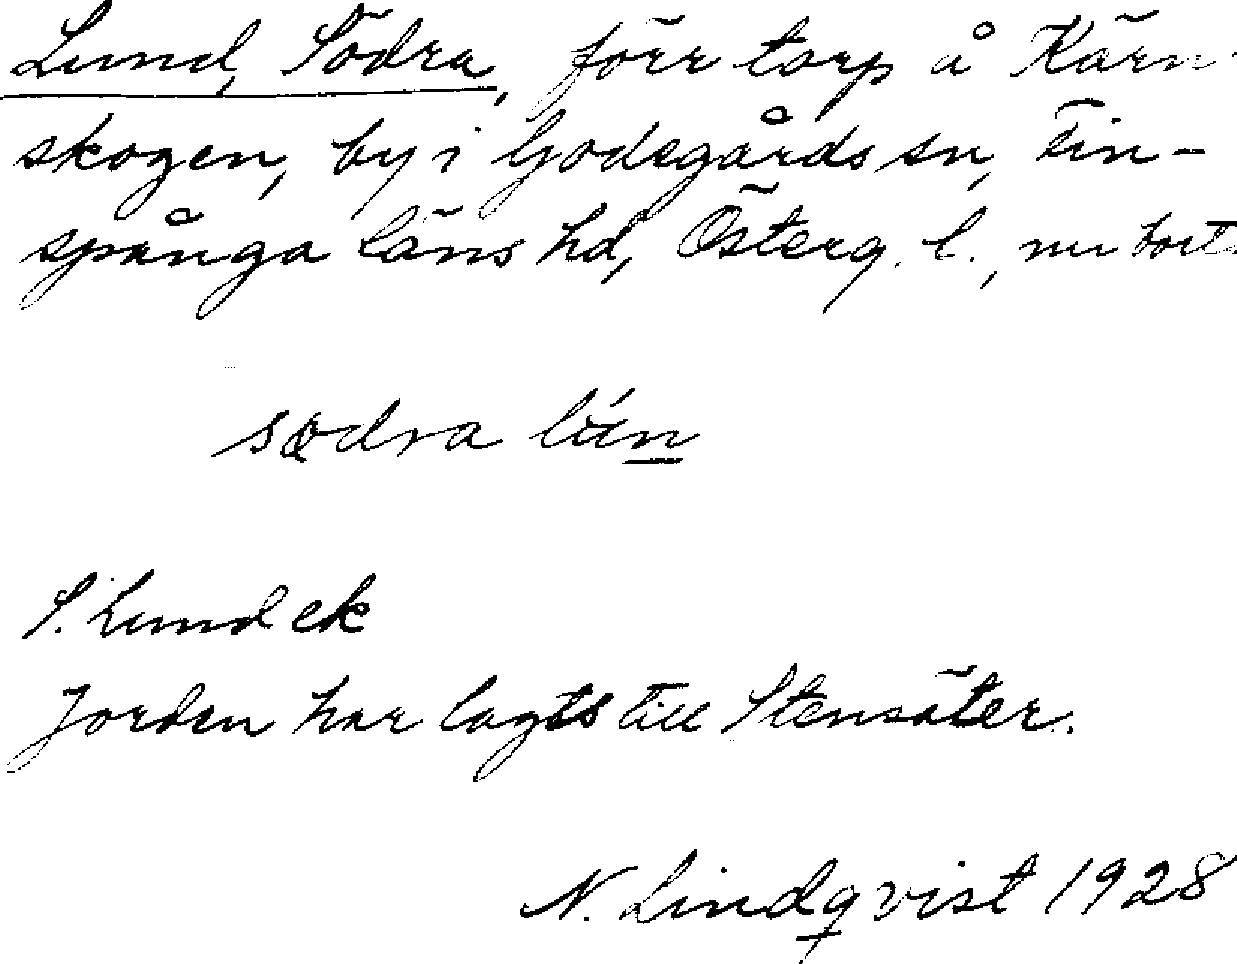 Lund, Södra, förr torp å Kärn-
skogen, by i Godegårds sn, Fin-
spånga läns hd, Österg. l., nu bort.
södra lún
S. Lund ek
Jorden har lagts till Stensäter.
N. Lindqvist 1928